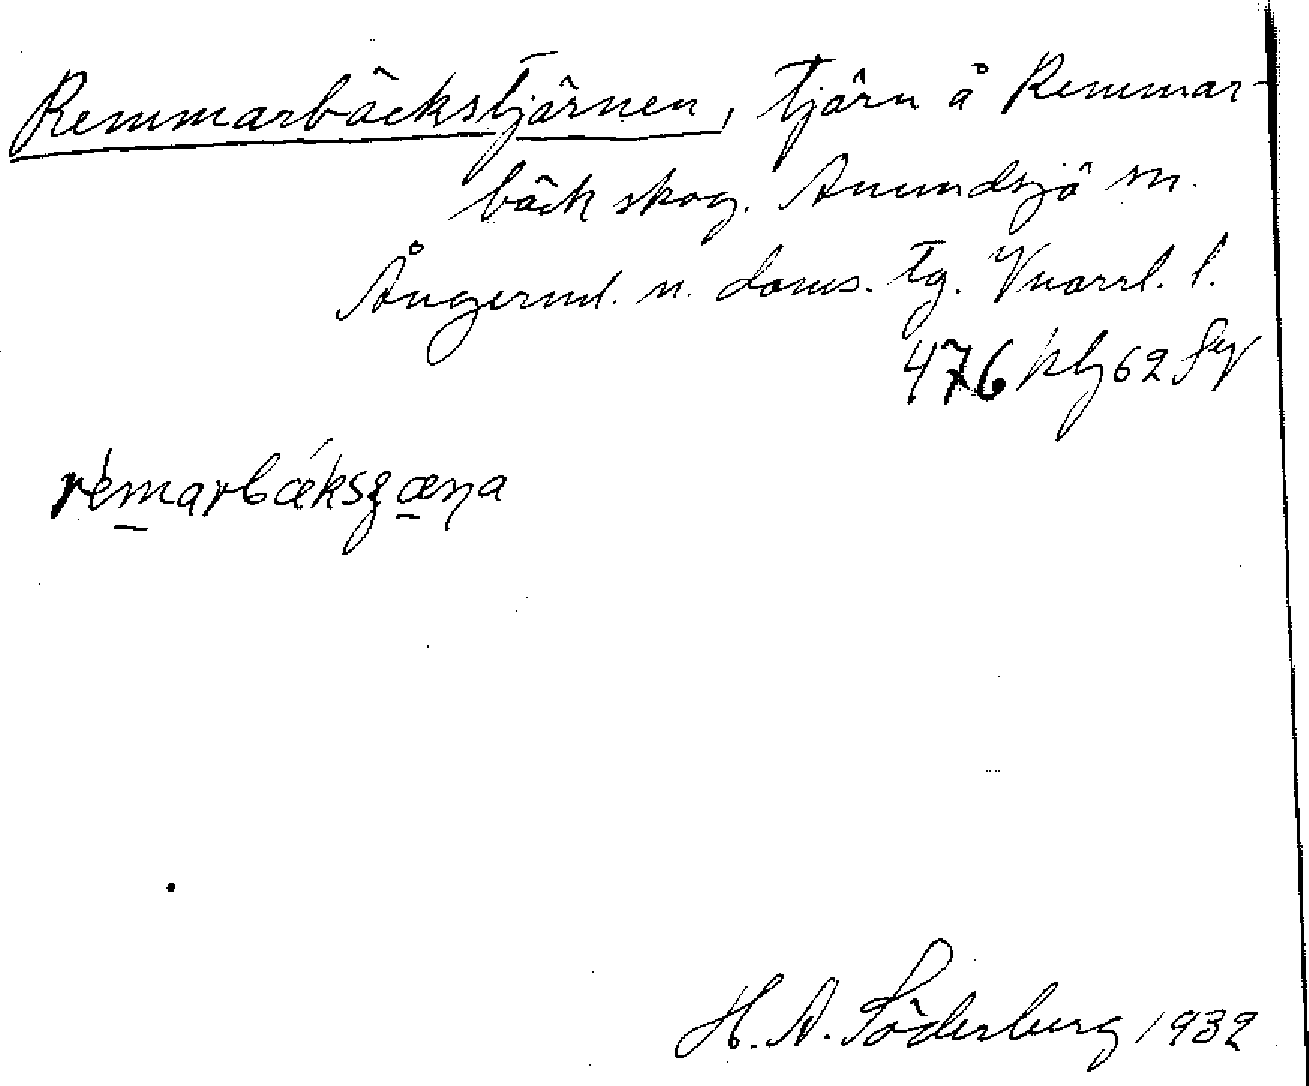 Remmarbäckstjärnen, tjärn å Remmar-
bäck skog. Anundsjö sn.
Ångerml. n. doms. tg. Vnorrl. l.
476 klg 62
rémarbǽksʒæṇa
H. A. Söderberg 1932